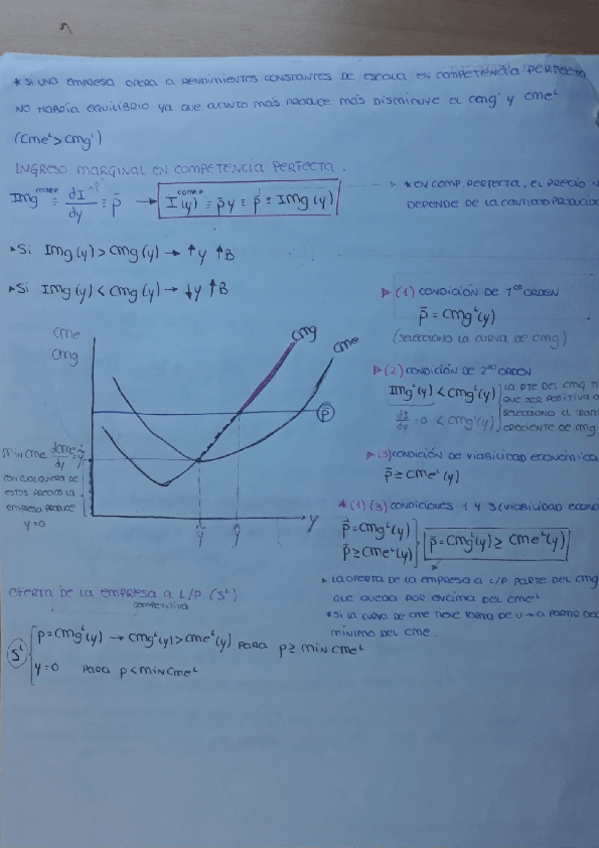 * SI UNA EMPRESA OPERA A RENDIMIENTOS CONSTANTES DE ESCALA EN COMPETENCIA PERFECTA
NO HABRÍA EQUILIBRIO YA QUE CUANTO MÁS PRODUCE MÁS DISMINUYE EL cmg^L Y cme^L
(cme^L > cmg^L)
INGRESO MARGINAL EN COMPETENCIA PERFECTA.
Img ≡ dI/dy ≡ p̄ → I(y) ≡ p̄y ≡ p̄ ≡ Img(y)
* EN COMP. PERFECTA, EL PRECIO
DEPENDE DE LA CANTIDAD
▸ Si Img(y) > cmg(y) → ↑y ↑B
▸ Si Img(y) < cmg(y) → ↓y ↑B
▷ (1) CONDICIÓN DE 1er ORDEN
p̄ = cmg^L(y)
(SELECCIONO LA CURVA DE cmg)
▷ (2) CONDICIÓN DE 2do ORDEN
Img^L(y) < cmg^L(y)
dI/dy = 0 < cmg^L(y)
LA PTE DEL cmg
QUE SER POSITIVA
SELECCIONO EL
CRECIENTE DE cmg
▷ (3) CONDICIÓN DE VIABILIDAD ECONÓMICA
p̄ ≥ cme^L(y)
* (1) (3) CONDICIONES 1 Y 3 (VIABILIDAD
p̄ = cmg^L(y)
p̄ ≥ cme^L(y)
p̄ = cmg^L(y) ≥ cme^L(y)
▸ LA OFERTA DE LA EMPRESA A L/P PARTE DEL cmg
QUE QUEDA POR ENCIMA DEL cme^L
* SI LA CURVA DE cme TIENE FORMA DE U → A PARTIR DEL
MÍNIMO DEL cme.
cme
cmg
cmg
cme
p̄
MIN cme dcme/dy
CON CUALQUIERA DE
ESTOS PRECIOS LA
EMPRESA PRODUCE
y=0
ỹ
ȳ
y
OFERTA DE LA EMPRESA A L/P (S^L)
COMPETITIVA
S^L
p = cmg^L(y) → cmg^L(y) > cme^L(y) PARA p ≥ MIN cme^L
y=0 PARA p < MIN cme^L